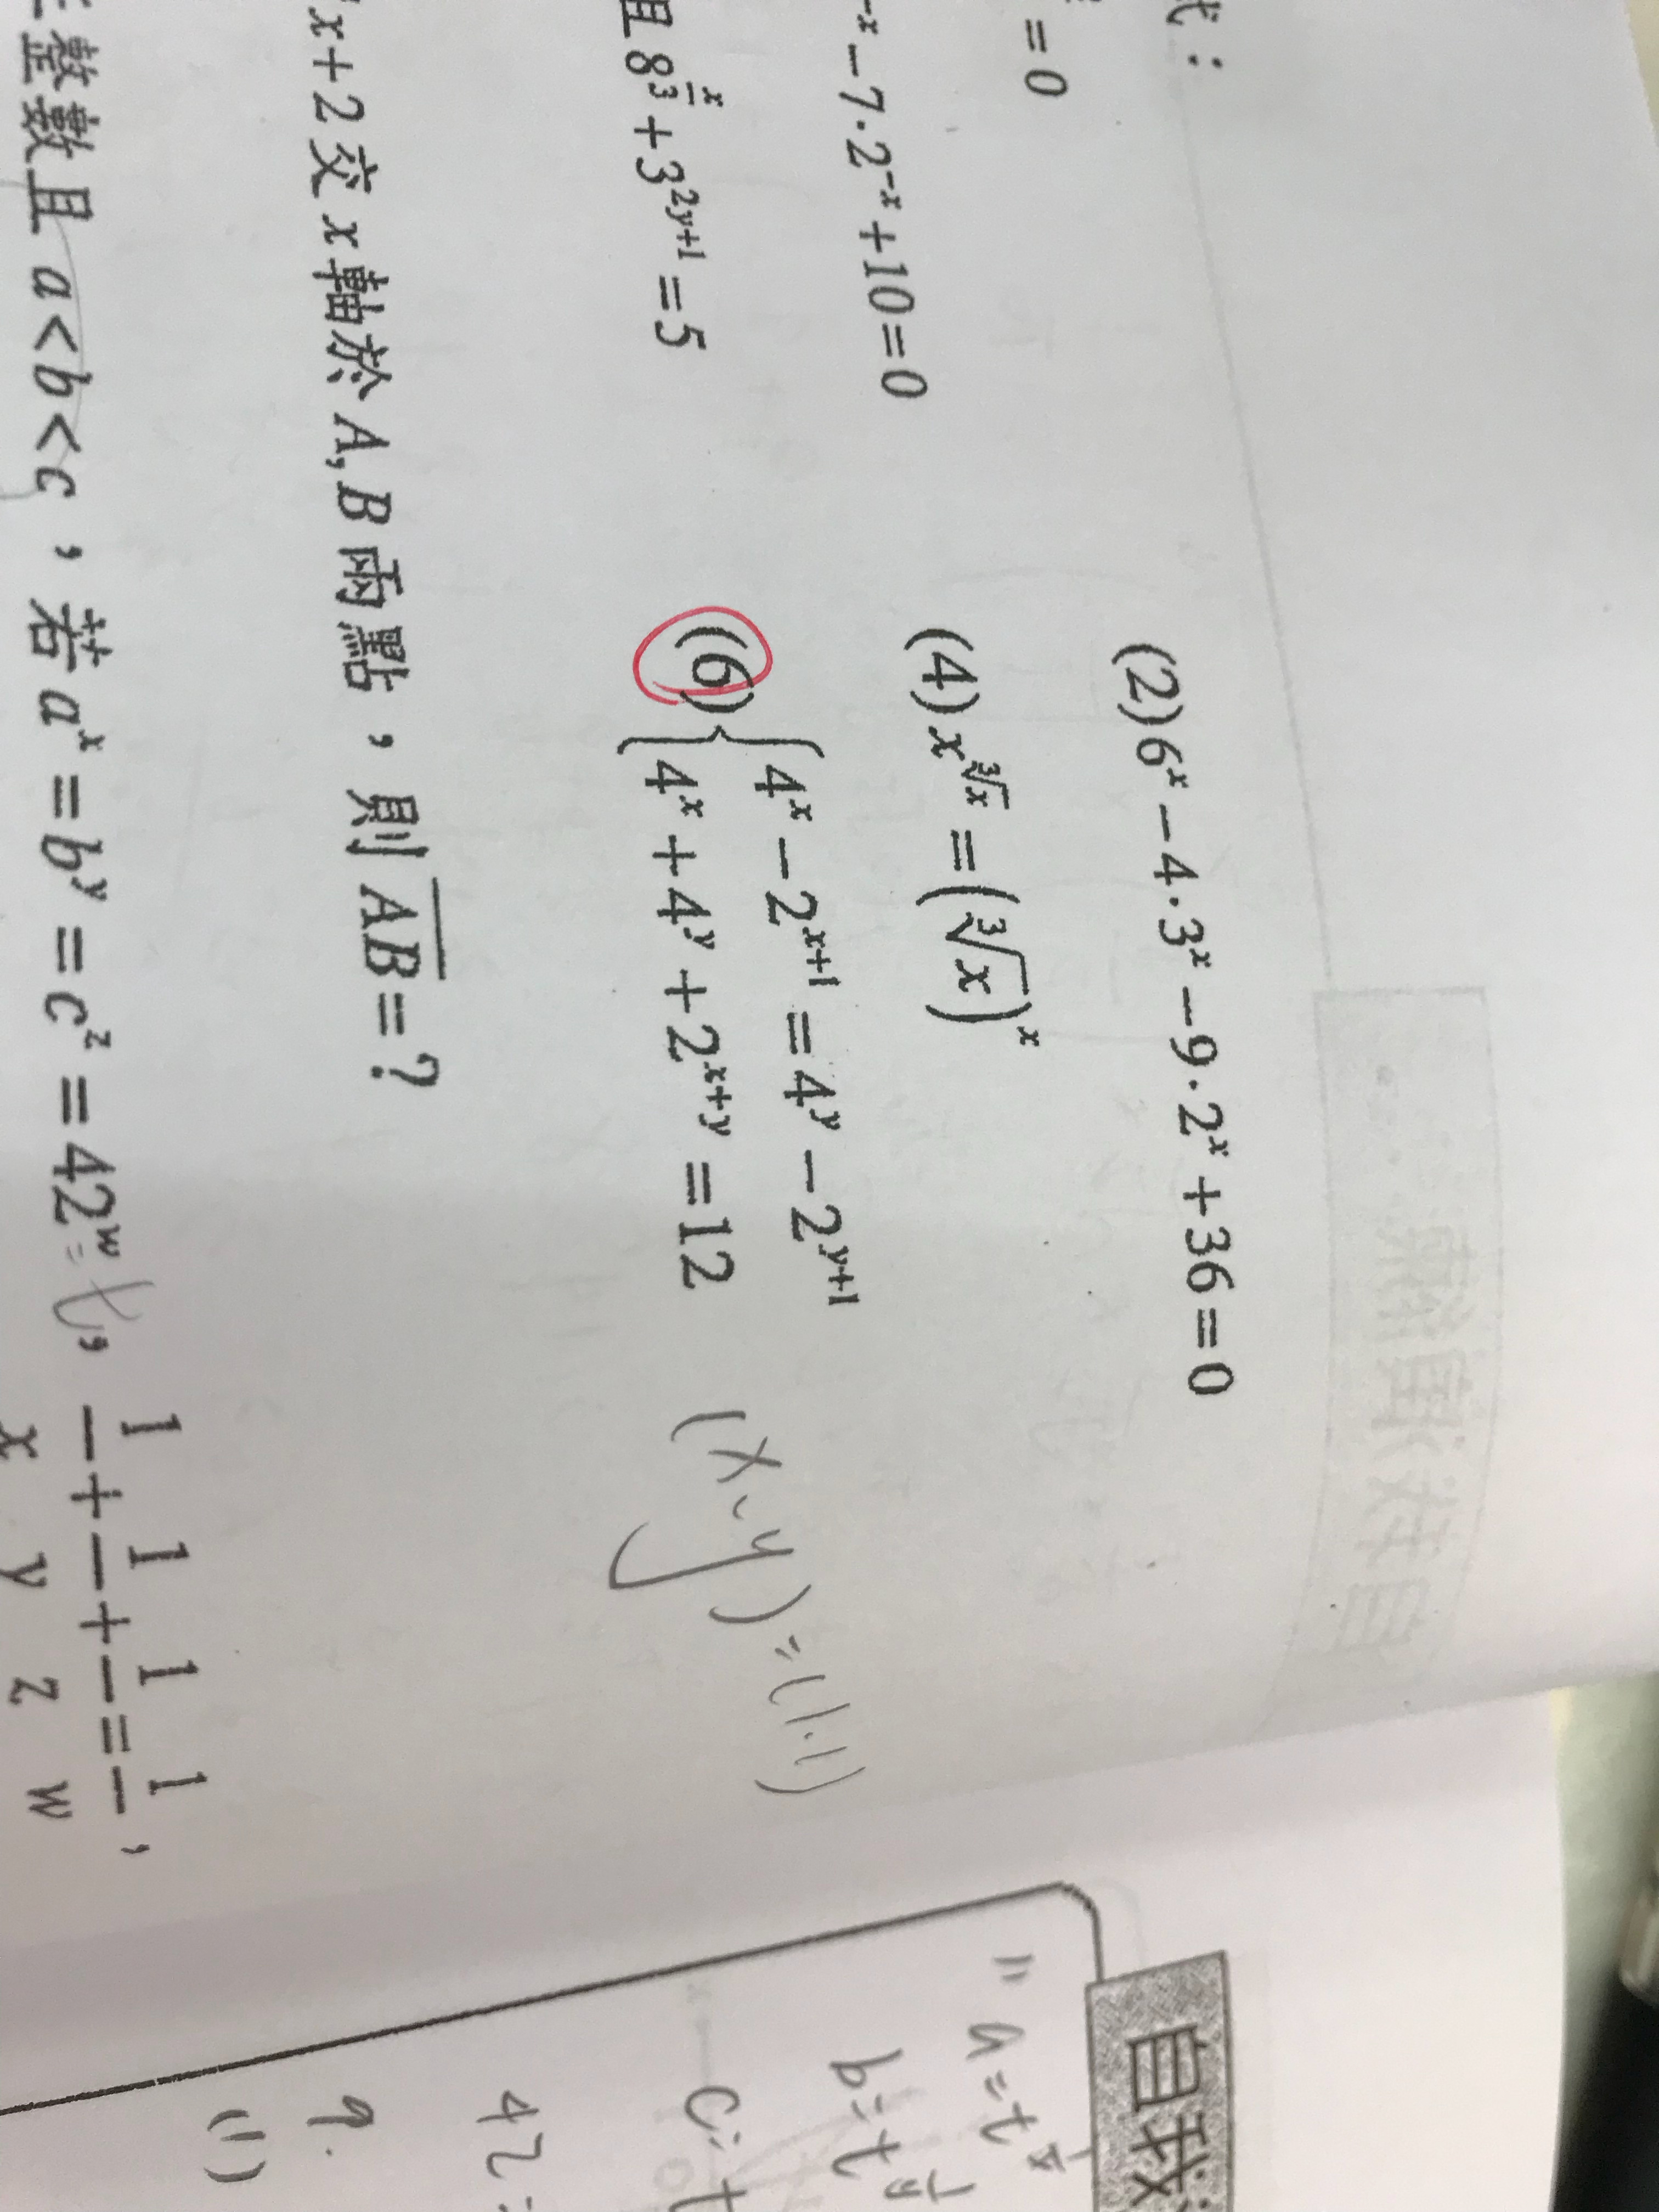 式：
= 0
(2) 6^x − 4·3^x − 9·2^x + 36 = 0
^{-x} − 7·2^{-x} + 10 = 0
(4) x^{∛x} = (∛x)^x
且 8^{x/3} + 3^{2y+1} = 5
(6) { 4^x − 2^{x+1} = 4^y − 2^{y+1}
4^x + 4^y + 2^{x+y} = 12
(x,y) = (1,1)
x + 2 交 x 軸於 A, B 兩點，則 \overline{AB} = ?
整數且 a < b < c，若 a^x = b^y = c^z = 42^w = t，1/x + 1/y + 1/z = 1/w，
自我
a = t^{1/x}
b = t^{1/y}
c = t
42 =
(1)